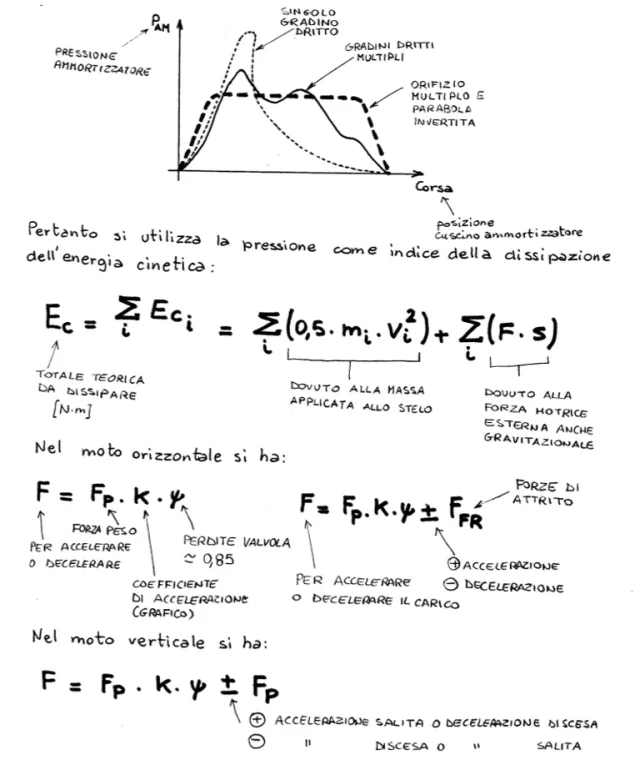 SINGOLO
GRADINO
DRITTO
P_AM
PRESSIONE
AMMORTIZZATORE
GRADINI DRITTI
MULTIPLI
ORIFIZIO
MULTIPLO E
PARABOLA
INVERTITA
Corsa
posizione
cuscino ammortizzatore
Pertanto si utilizza la pressione come indice della dissipazione
dell'energia cinetica:
E_c = Σ_i E_ci = Σ_i (0,5 · m_i · V_i²) + Σ_i (F · s)
TOTALE TEORICA
DA DISSIPARE
[N·m]
DOVUTO ALLA MASSA
APPLICATA ALLO STELO
DOVUTO ALLA
FORZA MOTRICE
ESTERNA ANCHE
GRAVITAZIONALE
Nel moto orizzontale si ha:
F = F_P · K · ψ
FORZA PESO
PER ACCELERARE
O DECELERARE
PERDITE VALVOLA
≃ 0,85
COEFFICIENTE
DI ACCELERAZIONE
(GRAFICO)
F = F_P · K · ψ ± F_FR
FORZE DI
ATTRITO
PER ACCELERARE
O DECELERARE IL CARICO
⊕ ACCELERAZIONE
⊖ DECELERAZIONE
Nel moto verticale si ha:
F = F_P · K · ψ ± F_P
⊕ ACCELERAZIONE SALITA O DECELERAZIONE DISCESA
⊖ " DISCESA O " SALITA